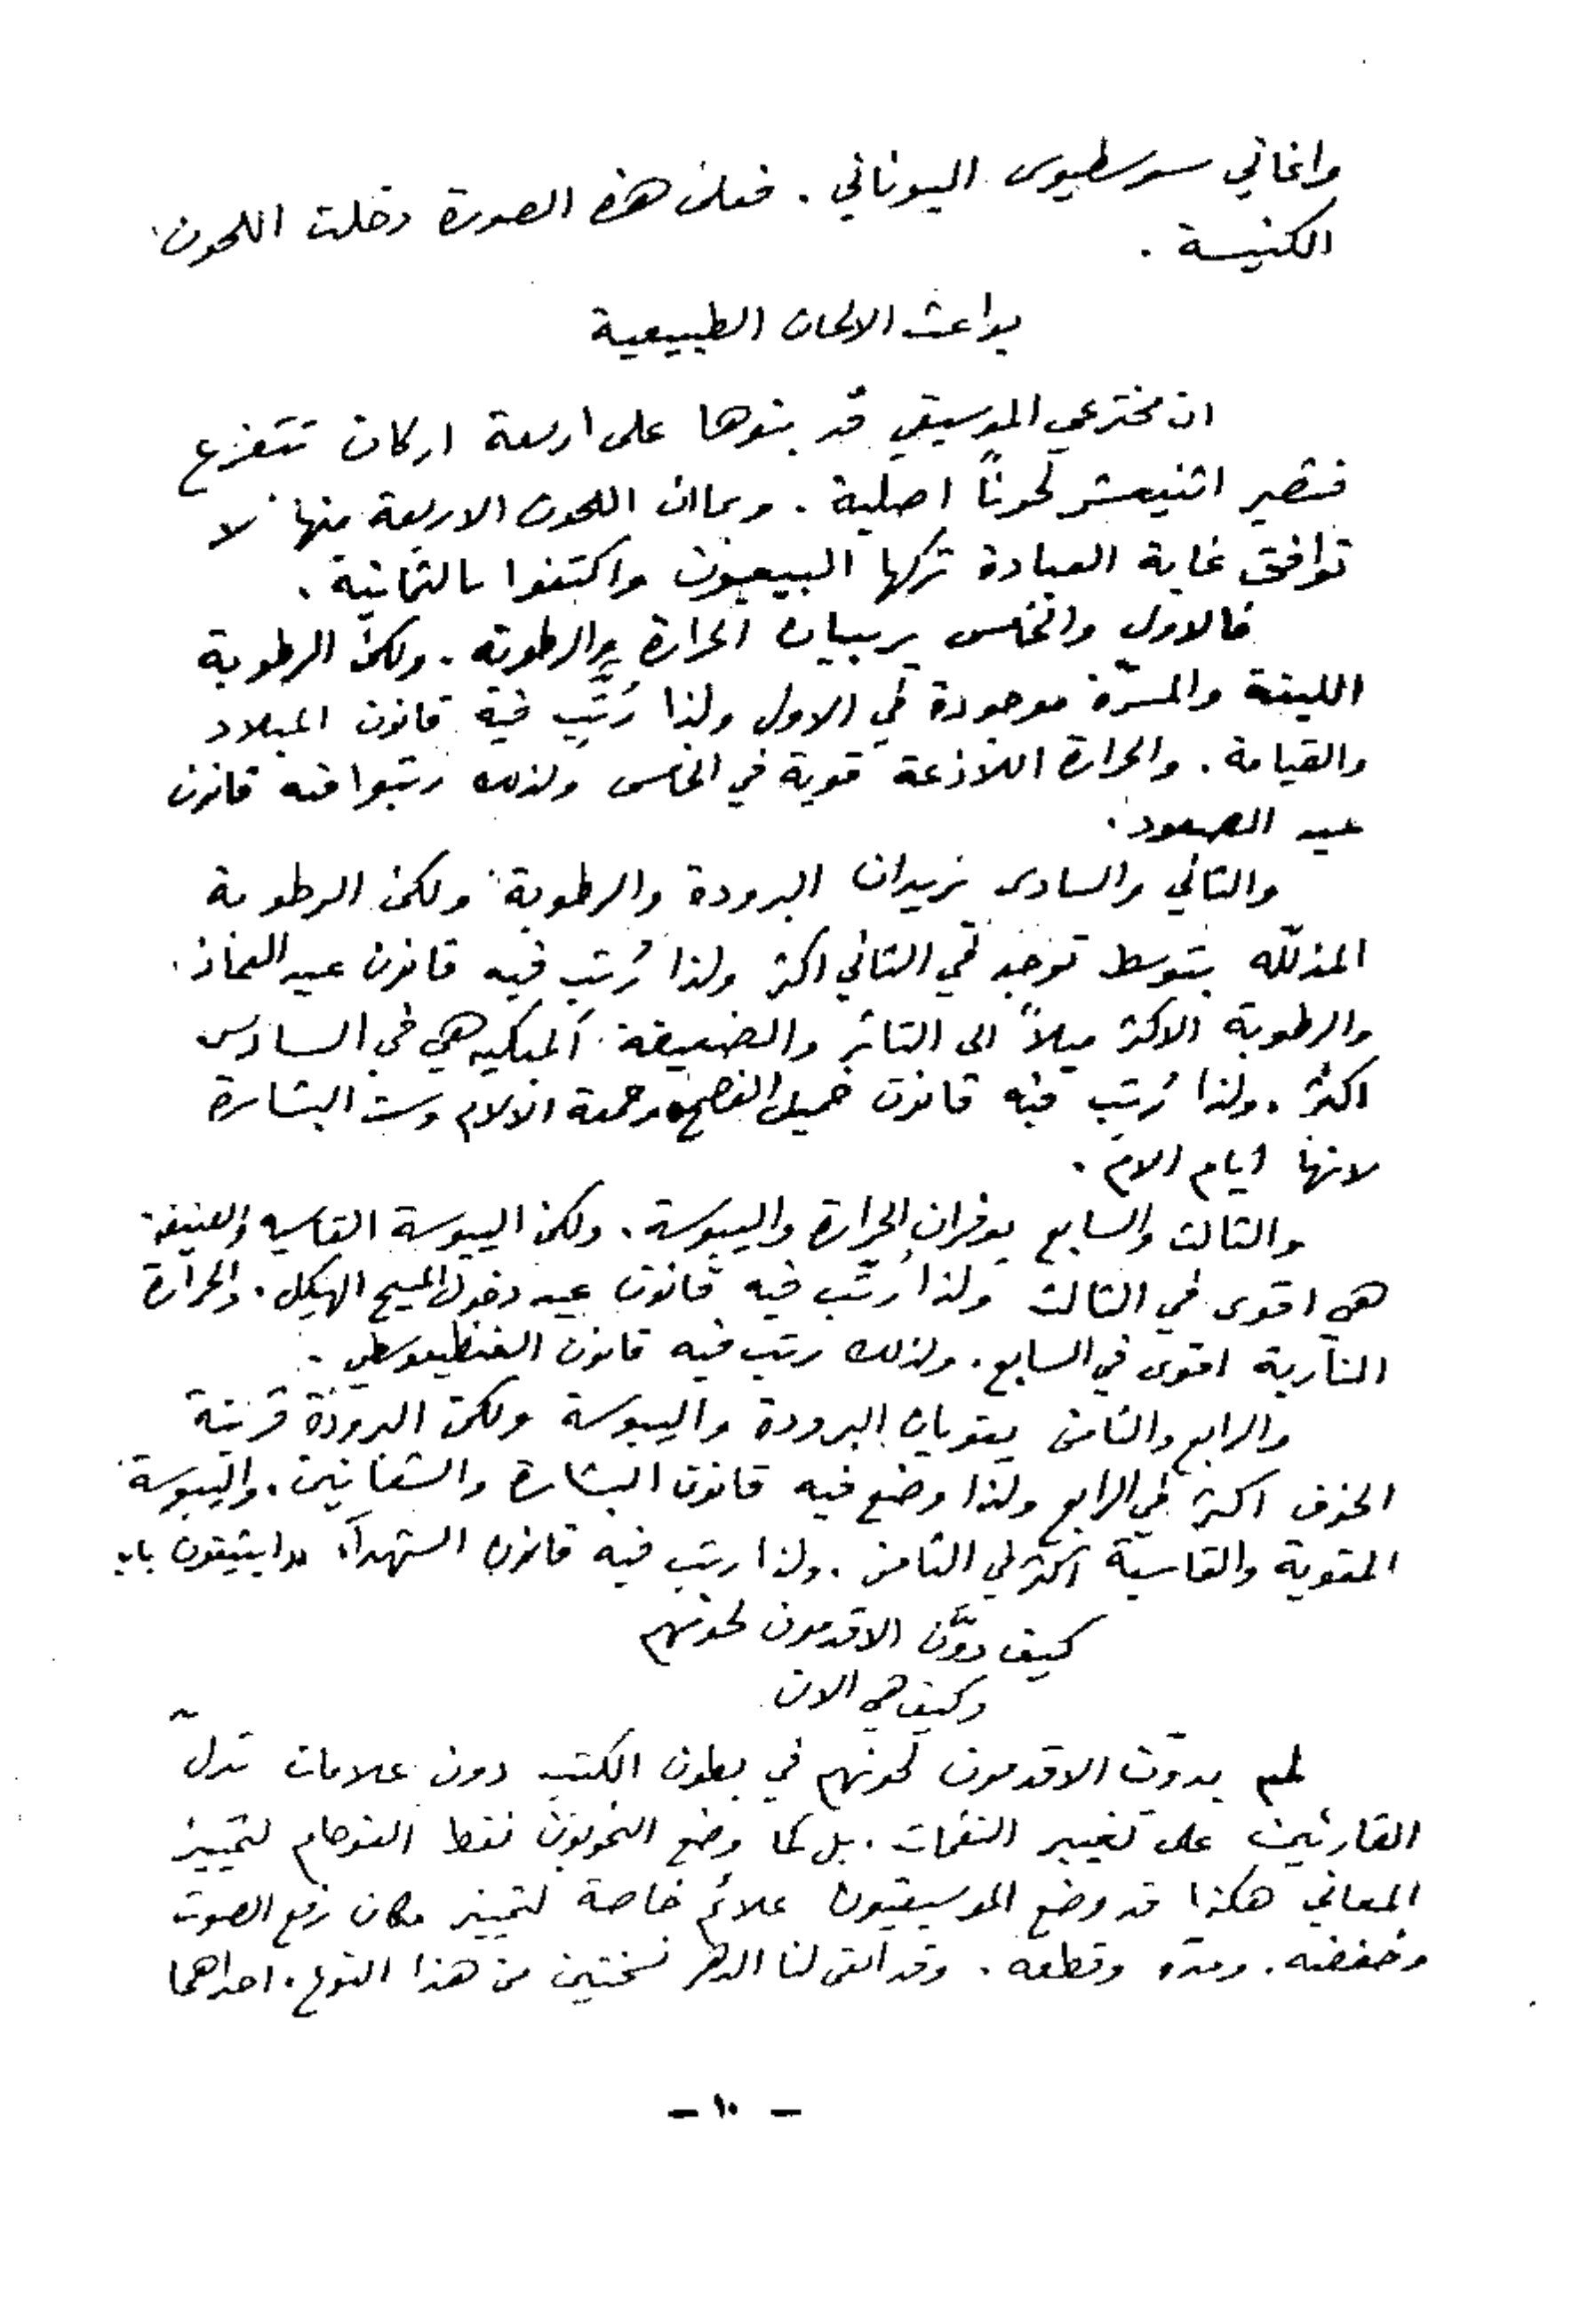 واغاني سرسطيوس اليوناني . فعلى هذه الصورة دخلت اللحون
الكنيسة .
بواعث الالحان الطبيعية
ان مخترعي الموسيقي قد بنوها على اربعة اركان تتفرع
فتصير اثنيعشر لحوناً اصلية . وبما ان اللحون الاربعة منها لا
توافق غاية العبادة تركها البيعيون واكتفوا بالثمانية .
فالاول والخامس يربيان الحرارة والرطوبة . ولكنّ الرطوبة
اللينة والمسرّة موجودة في الاول ولذا رُتّب فيه قانون الميلاد
والقيامة . والحرارة اللاذعة قوية في الخامس ولذلك رتبوا فيه قانون
عيد الصعود .
والثاني والسادس يزيدان البرودة والرطوبة ولكن الرطوبة
المذلّله بتوسط توجد في الثاني اكثر ولذا رُتب فيه قانون عيد العماذ .
والرطوبة الاكثر ميلاً الى التأثر والضعيفة المبكيه هي في السادس
اكثر . ولذا رُتب فيه قانون خميس الفصح وجمعة الالام وسبت البشارة
لانها ايام الام .
والثالث والسابع يوفران الحرارة واليبوسة . ولكن اليبوسة القاسيه والعنيفة
هي اقوى في الثالث ولذا رُتّب فيه قانون عيد دخول المسيح الهيكل . والحرارة
النارية اقوى في السابع . ولذلك رتب فيه قانون الفنطيقوسطي .
والرابع والثامن يقويان البرودة واليبوسة ولكن البرودة قرينة
الخوف اكثر في الرابع ولذا وضع فيه قانون البشارة والشعانين . واليبوسة
المقوية والقاسية اكثر في الثامن . ولذا رتب فيه قانون الشهدآء الواثقون بالله
كيف دوَّن الاقدمون لحونهم
وكيف هي الان
لم يدوّن الاقدمون لحونهم في بطون الكتب دون علامات تدلّ
القارئين على تغيير النغمات . بل كما وضع النحويون نقط الفوحام لتمييز
المعاني هكذا قد وضع الموسيقيون علائم خاصة لتمييز مكان رفع الصوت
وخفضه . ومدّه وقطعه . وقد القى لنا الدهر نسختين من هذا النوع . احداهما
- ١٠ -